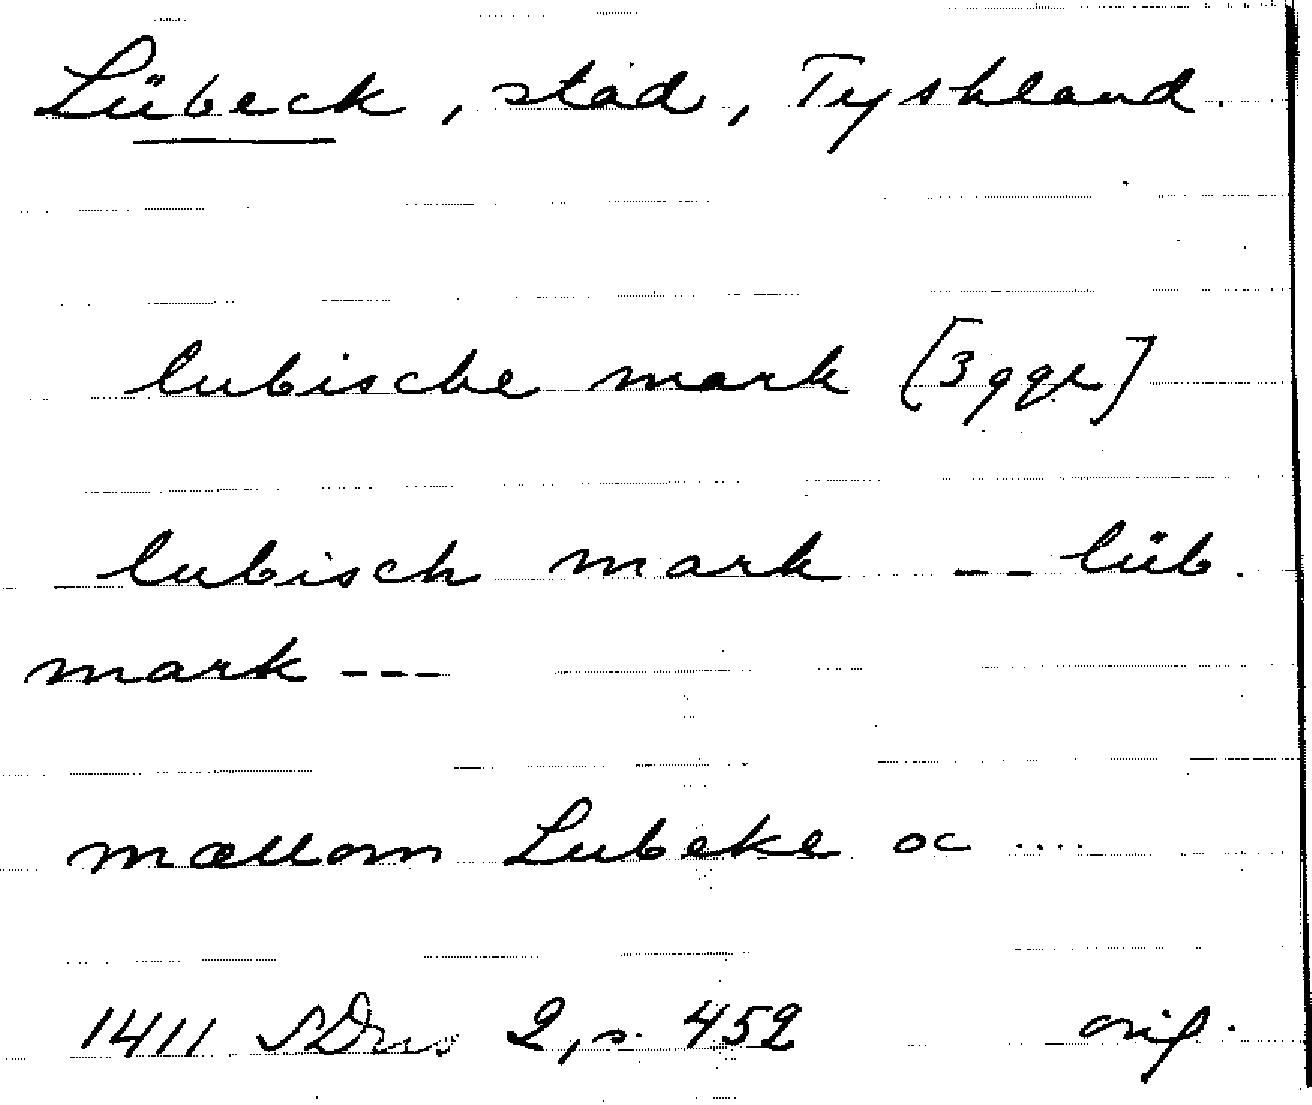 Lübeck, stad, Tyskland.
lubische mark [3 ggr]
lubisch mark -- lüb.
mark ---
mællom Lubeke oc ....
1411 SDns 2, s. 452 orig.